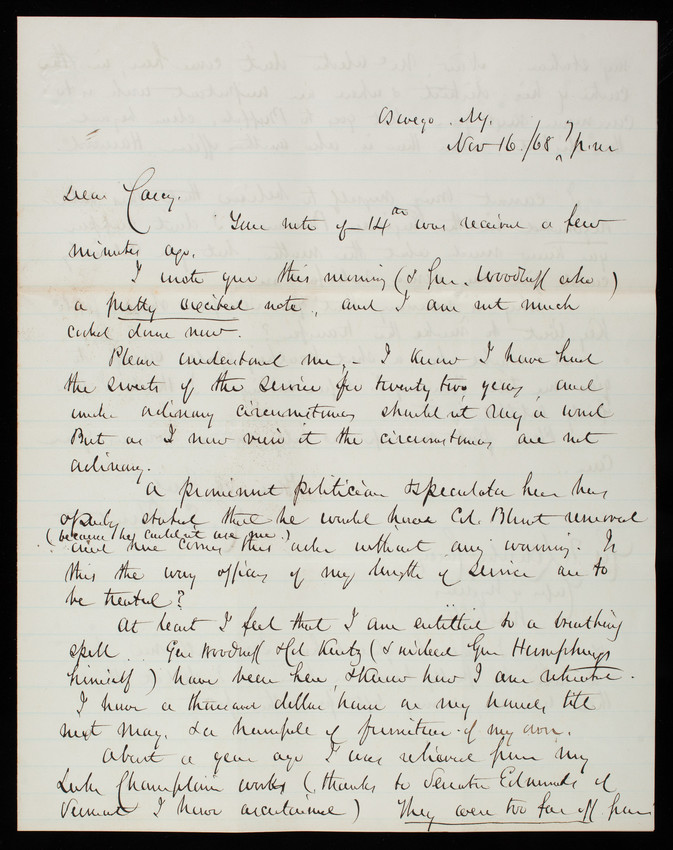 Oswego. N.Y.
Nov 16./68 7 p.m
Dear Casey.
Your note of 14th was received a few
minutes ago.
I wrote you this morning (& Gen. Woodruff also)
a pretty decided note, and I am not much
cooled down now.
Please understand me, - I know I have had
the sweets of the service for twenty two years, and
under ordinary circumstances should not say a word
But as I now view it the circumstances are not
ordinary.
A prominent politician & speculator here has
openly stated that he would have Col. Blunt removed
(because he could not use me.)
and now comes this order without any warning. Is
this the way officers of my length of service are to
be treated?
At least I feel that I am entitled to a breathing
spell... Gen Woodruff & Col Kurtz (& indeed Gen Humphreys
himself) have been here, & know how I am situated.
I have a thousand dollar house on my hands till
next May. & a houseful of furniture of my own.
About a year ago I was relieved from my
Lake Champlain works (thanks to Senator Edmunds of
Vermont I have ascertained) They were too far off from